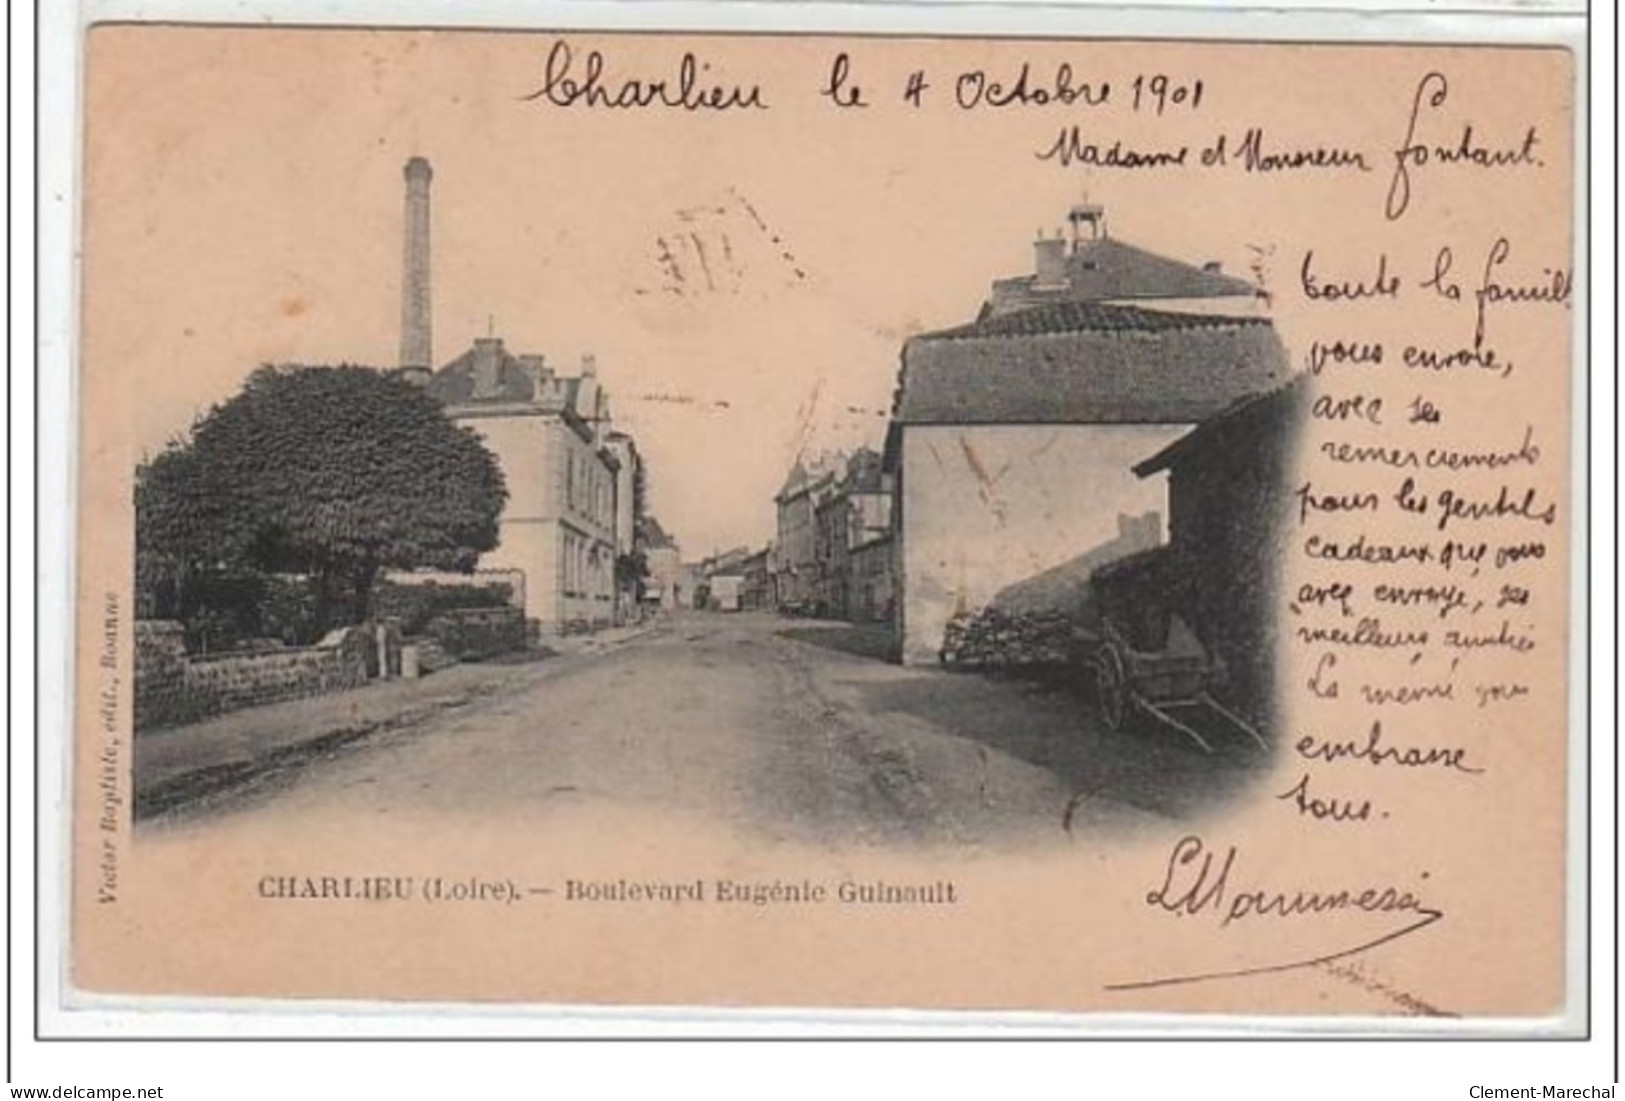 Charlieu le 4 Octobre 1901
Madame et Monsieur Fontant.
toute la famille
vous envoie,
avec ses
remerciements
pour les gentils
cadeaux que vous
avez envoyé, ses
meilleurs amitiés
La mémé vous
embrasse
tous.
CHARLIEU (Loire). — Boulevard Eugénie Guinault
Victor Baptiste, édit., Roanne
delcampe.net
Clement-Marechal